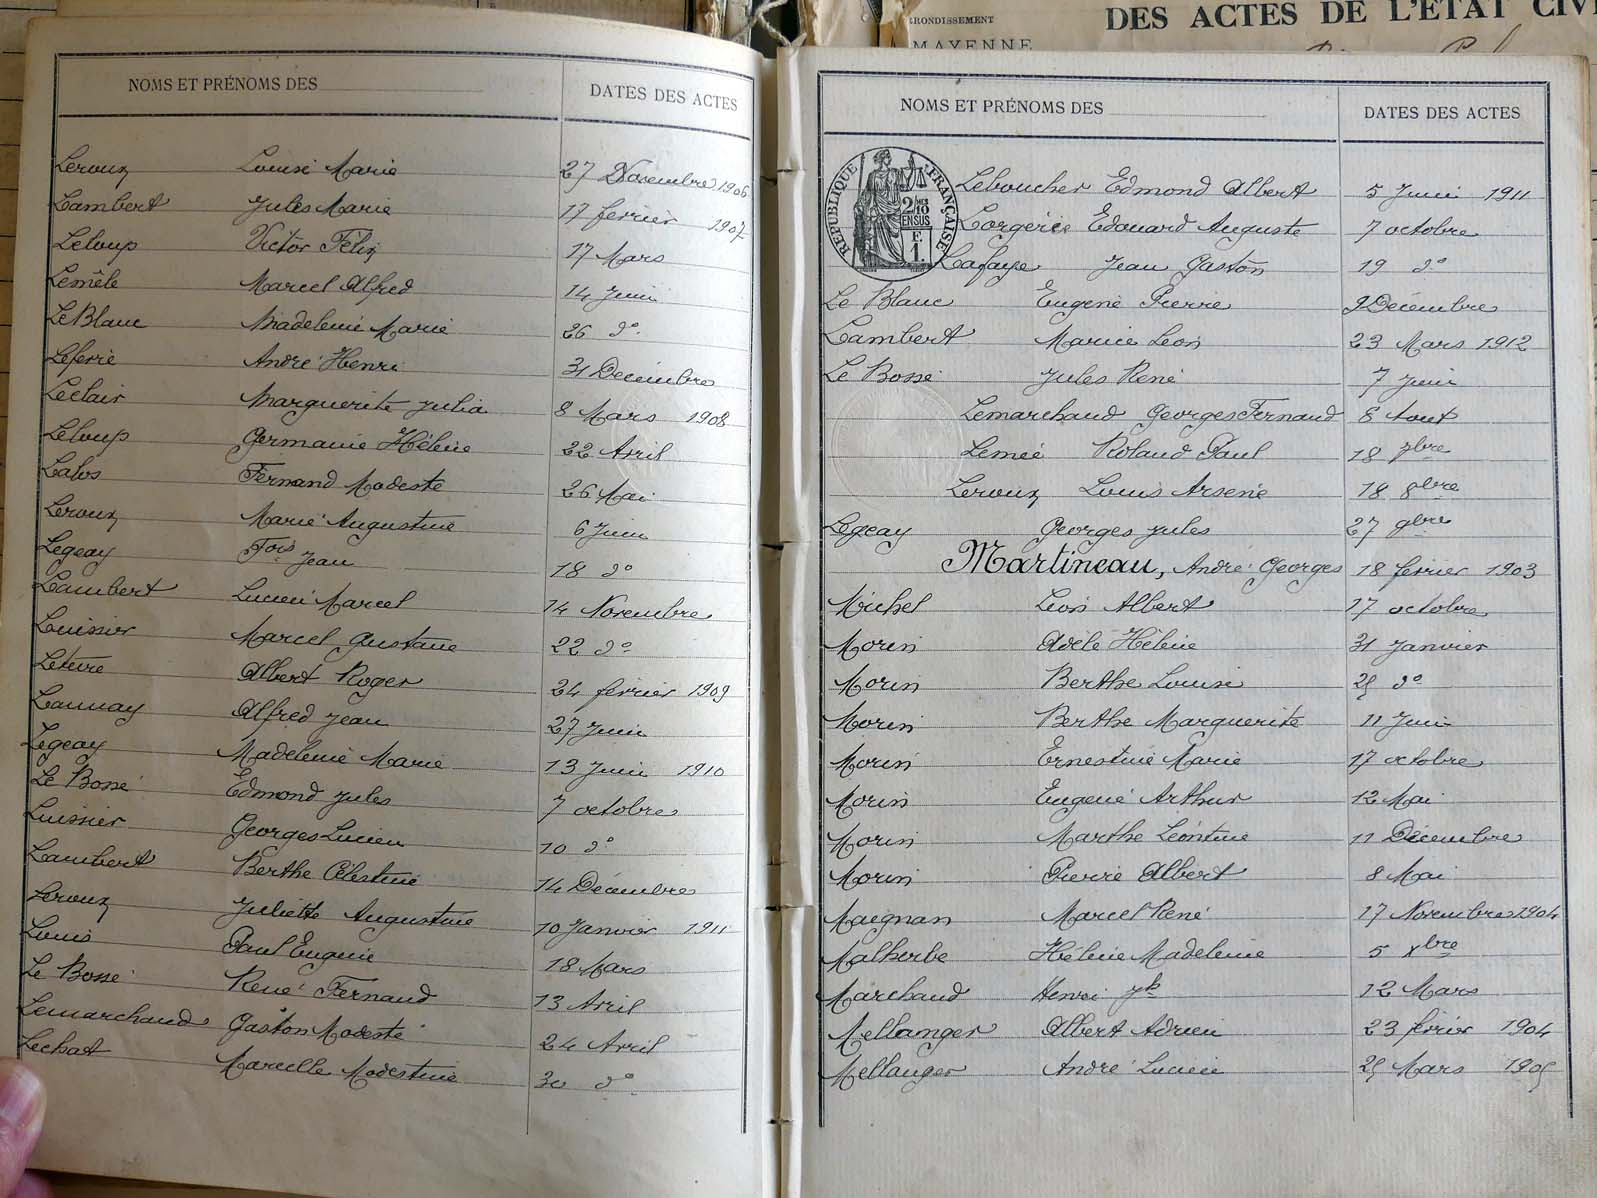 RRONDISSEMENT
MAYENNE
DES ACTES DE L'ÉTAT CIV
NOMS ET PRÉNOMS DES DATES DES ACTES
Leroux Louise Marie 27 Novembre 1906
Lambert Jules Marie 17 février 1907
Leloup Victor Félix 17 Mars
Lemêle Marcel Alfred 14 Juin
Le Blanc Madeleine Marie 26 do
Leferre André Henri 31 Décembre
Leclair Marguerite Julia 8 Mars 1908
Leloup Germaine Hélène 22 Avril
Fernand Modeste 26 Mai
Leroux Marie Augustine 6 Juin
Legeay Fois Jean 18 do
Lambert Lucien Marcel 14 Novembre
Luissier Marcel Gustave 22 do
Albert Roger 24 février 1909
Launay Alfred Jean 27 Juin
Legeay Madeleine Marie 13 Juin 1910
Le Bossé Edmond Jules 7 octobre
Luissier Georges Lucien 10 do
Lambert Berthe Célestine 14 Décembre
Leroux Juliette Augustine 10 Janvier 1911
Louis Paul Eugène 18 Mars
Le Bossé René Fernand 13 Avril
Lemarchand Gaston Modeste 24 Avril
Lechat Marcelle Modestine 30 do
NOMS ET PRÉNOMS DES DATES DES ACTES
RÉPUBLIQUE FRANÇAISE
2/10 EN SUS
F. 1.
Leboucher Edmond Albert 5 Juin 1911
Lorgerie Edouard Auguste 7 octobre
Lafaye Jean Gaston 19 do
Le Blanc Eugène Pierre 9 Décembre
Lambert Marie Léon 23 Mars 1912
Le Bossé Jules René 7 Juin
Lemarchand Georges Fernand 8 Aout
Lemée Roland Paul 18 7bre
Leroux Louis Arsène 18 8bre
Legeay Georges Jules 27 9bre
Martineau, André Georges 18 février 1903
Michel Léon Albert 17 octobre
Morin Adèle Hélène 31 Janvier
Morin Berthe Louise 25 do
Morin Berthe Marguerite 11 Juin
Morin Ernestine Marie 17 octobre
Morin Eugène Arthur 12 Mai
Morin Marthe Léontine 11 Décembre
Morin Pierre Albert 8 Mai
Maignan Marcel René 17 Novembre 1904
Malherbe Hélène Madeleine 5 Xbre
Marchand Henri Jh 12 Mars
Mellanger Albert Adrien 23 février 1904
Mellanger André Lucien 25 Mars 1905